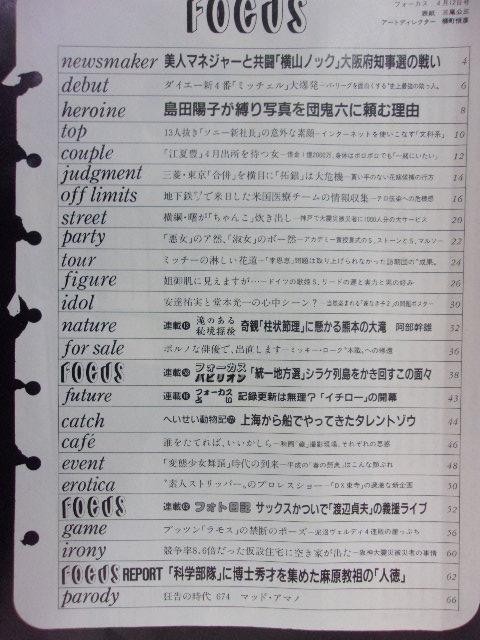 FOCUS
フォーカス 4月12日号
表紙 三尾公三
アートディレクター
newsmaker 美人マネジャーと共闘「横山ノック」大阪府知事選の戦い 4
debut ダイエー新4番「ミッチェル」大爆発 6
heroine 島田陽子が縛り写真を団鬼六に頼む理由 8
top 13人抜き「ソニー新社長」の意外な素顔―インターネットを使いこなす「文科系」 10
couple 「江夏豊」4月出所を待つ女―借金1億2000万、身体はボロボロでも「一緒にいたい」 12
judgment 三菱・東京「合併」を横目に「拓銀」は大危機―貰い手のない花嫁候補の行方 14
off limits 地下鉄サリンで来日した米国医療チームの情報収集―テロ弦楽への危機感 16
street 横綱・曙が「ちゃんこ」炊き出し―神戸で大震災被災者に1000人分の大サービス 20
party 「悪女」のア然、「淑女」のボー然―アカデミー賞授賞式のS.ストーンとS.マルソー 22
tour ミッチーの淋しい花道―「李恩恵」問題は取り上げられなかった訪朝団の“成果” 24
figure 姐御肌に見えますが…―ドイツの歌姫S.リードの運と実力と男の好み 26
idol 安達祐実と堂本光一の心中シーン? 30
nature 連載 滝のある秘境探検 奇観「柱状節理」に懸かる熊本の大滝 阿部幹雄 32
for sale ポルノな俳優で、出直します―ミッキー・ローク“本職”への帰還 36
FOCUS 連載 フォーカスパビリオン 「統一地方選」シラケ列島をかき回すこの面々 38
future 連載 フォーカス 占い 記録更新は無理?「イチロー」の開幕 43
catch へいせい動物記 上海から船でやってきたタレントゾウ 44
café 誰をたてれば、いいかしら 46
event 「変態少女舞踊」時代の到来―平成の「春の祭典」はこんな顔ぶれ 48
erotica “素人ストリッパー”のプロレスショー―「DX東寺」の過激な新企画 50
FOCUS 連載 フォト日記 サックスかついで「渡辺貞夫」の義援ライブ 52
game ブッツン「ラモス」の禁断のポーズ―泥沼ヴェルディ4連敗の崖っぷち 56
irony 競争率8.6倍だった仮設住宅に空き家が出た―阪神大震災被災者の事情 60
FOCUS REPORT 「科学部隊」に博士秀才を集めた麻原教祖の「人徳」 62
parody 狂告の時代 674 マッド・アマノ 66